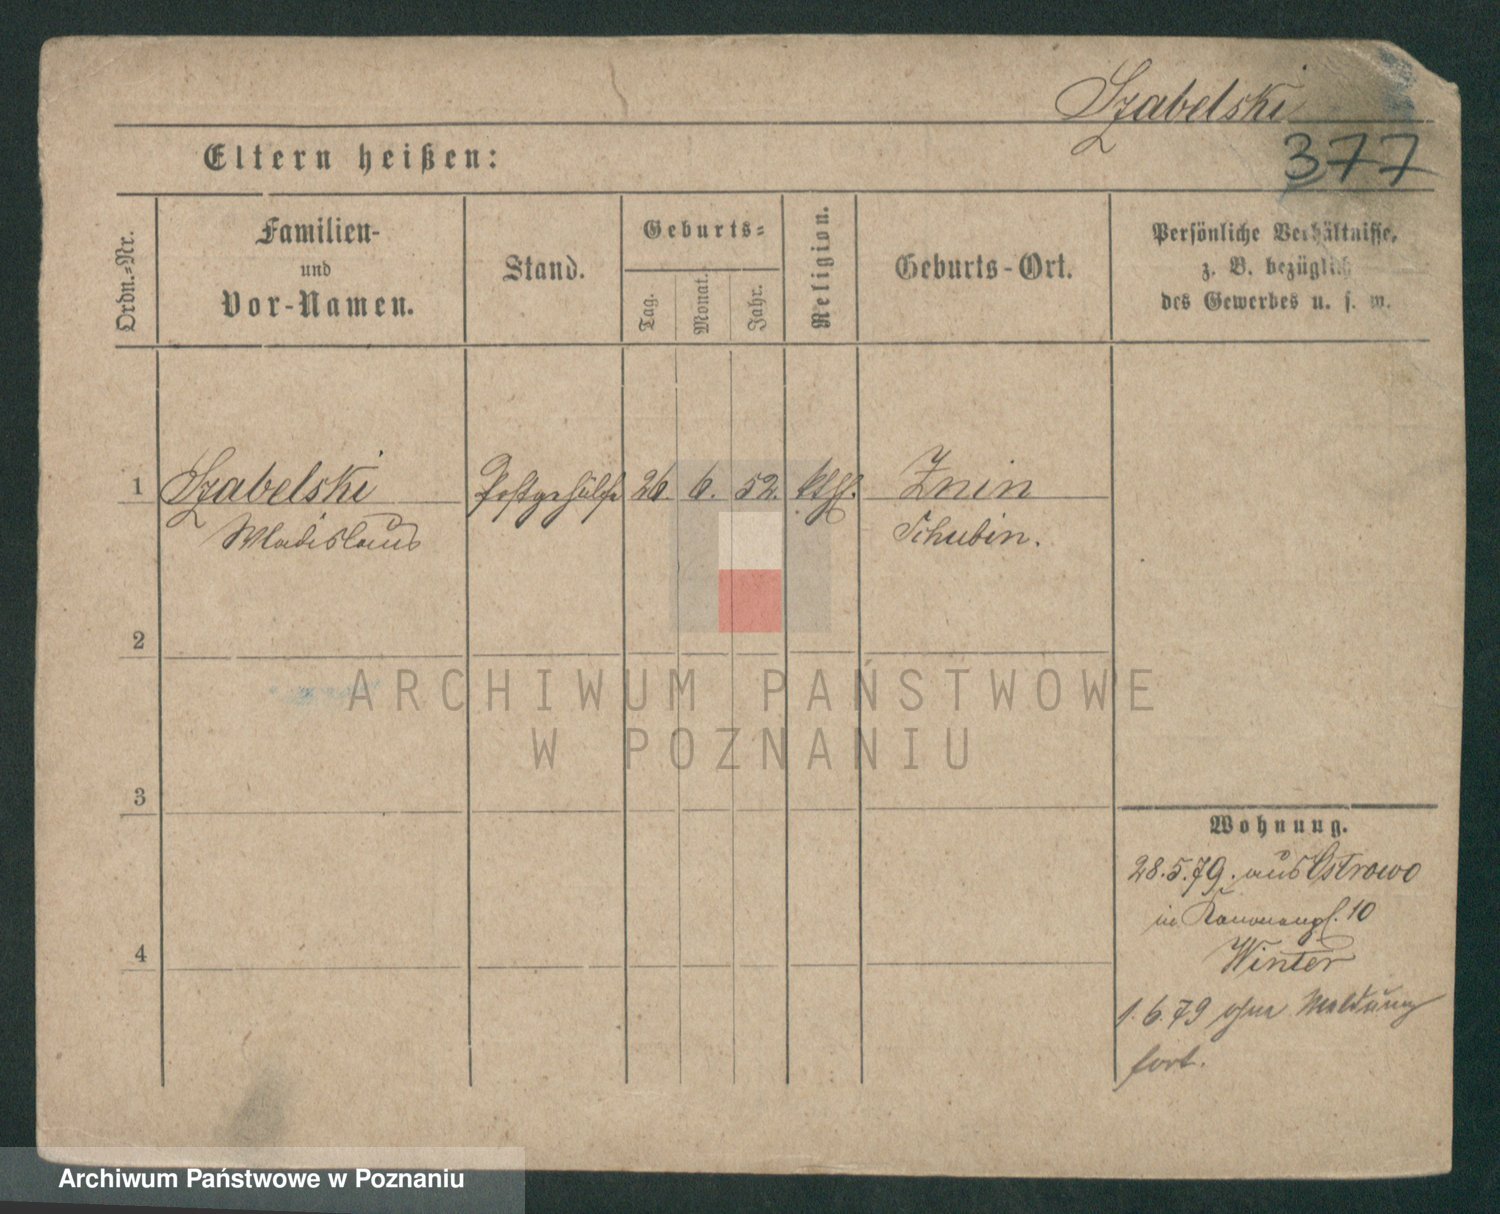 Szabelski
377
Eltern heißen:
Ordn.-Nr.
Familien-
und
Vor-Namen.
Stand.
Geburts-
Tag.
Monat.
Jahr.
Religion.
Geburts-Ort.
Persönliche Verhältnisse,
z. B. bezüglich
des Gewerbes u. s. w.
1 Szabelski Postgehülfe 26. 6. 52. kthl. Znin
Wladislaus Schubin.
2
3
4
Wohnung.
28.5.79. aus Ostrowo
in Kanonenpl. 10
Winter
1.6.79 ohne Meldung
fort.
ARCHIWUM PAŃSTWOWE
W POZNANIU
Archiwum Państwowe w Poznaniu